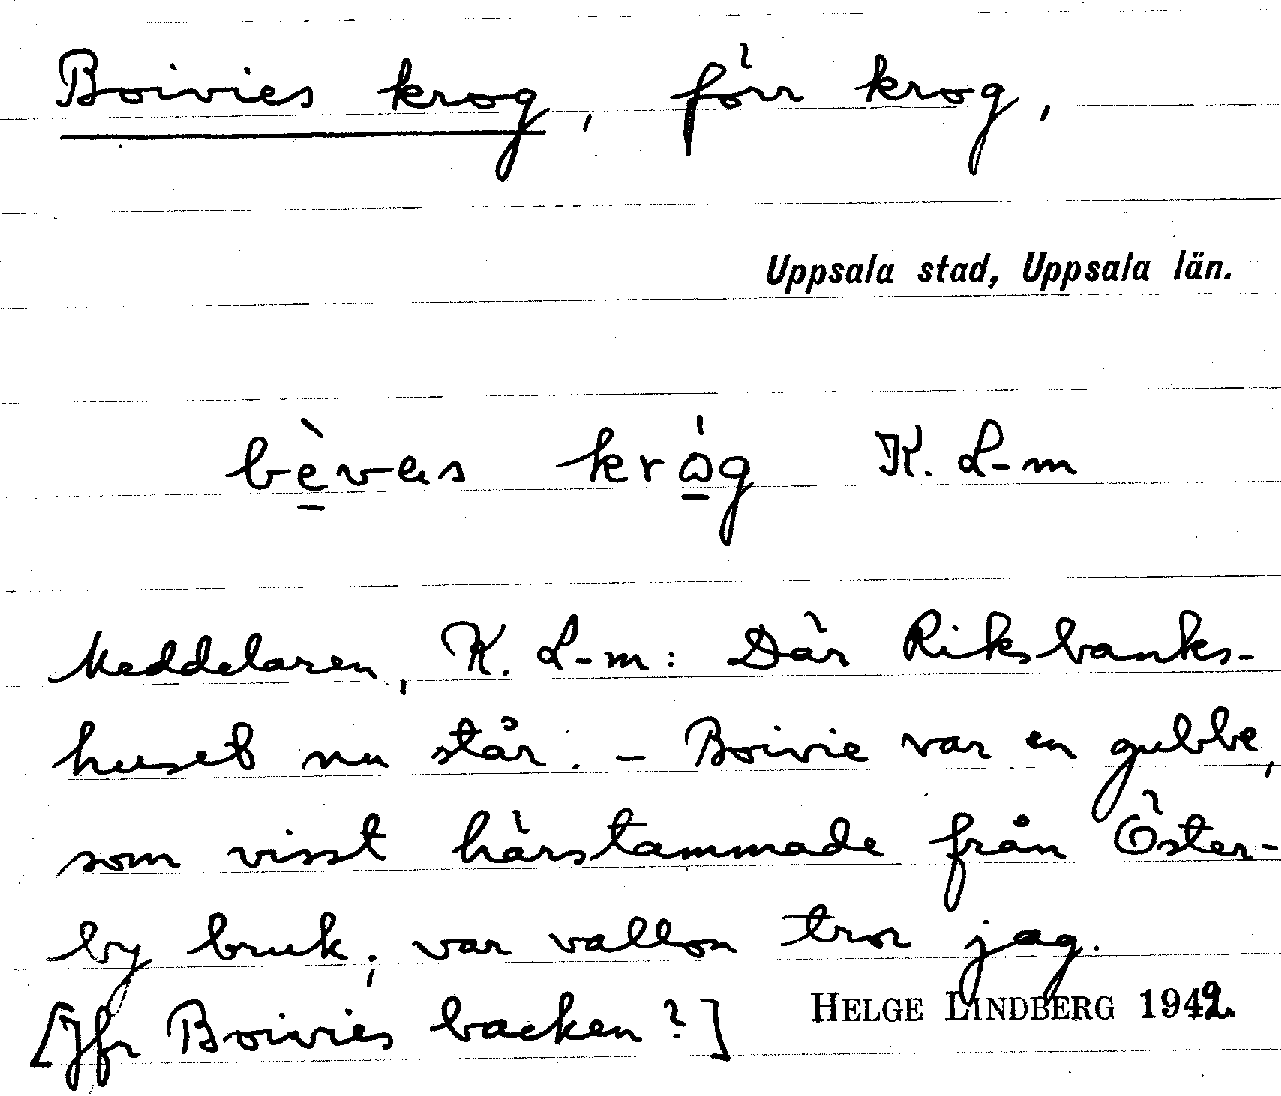 Boivies krog, förr krog,
Uppsala stad, Uppsala län.
K. L-m
Meddelaren, K. L-m: Där Riksbanks-
huset nu står. – Boivie var en gubbe,
som visst härstammade från Öster-
by bruk; var vallon tror jag.
[Jfr Boivies backen?]
HELGE LINDBERG 1942.